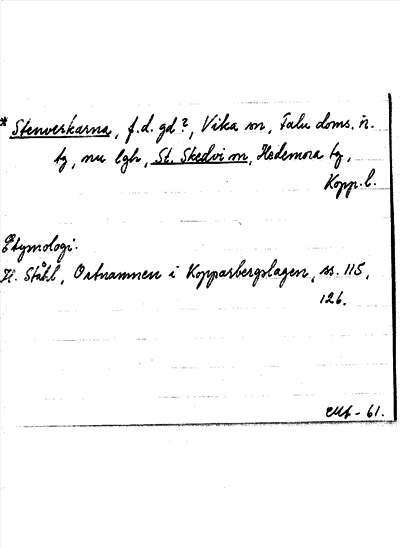 * Stenverkarna, f.d. gd?, Vika sn, Falu doms. n.
tg, nu lgh, St. Skedvi sn, Hedemora tg,
Kopp. l.
Etymologi.
H. Ståhl, Ortnamnen i Kopparbergslagen, ss. 115,
126.
-61.